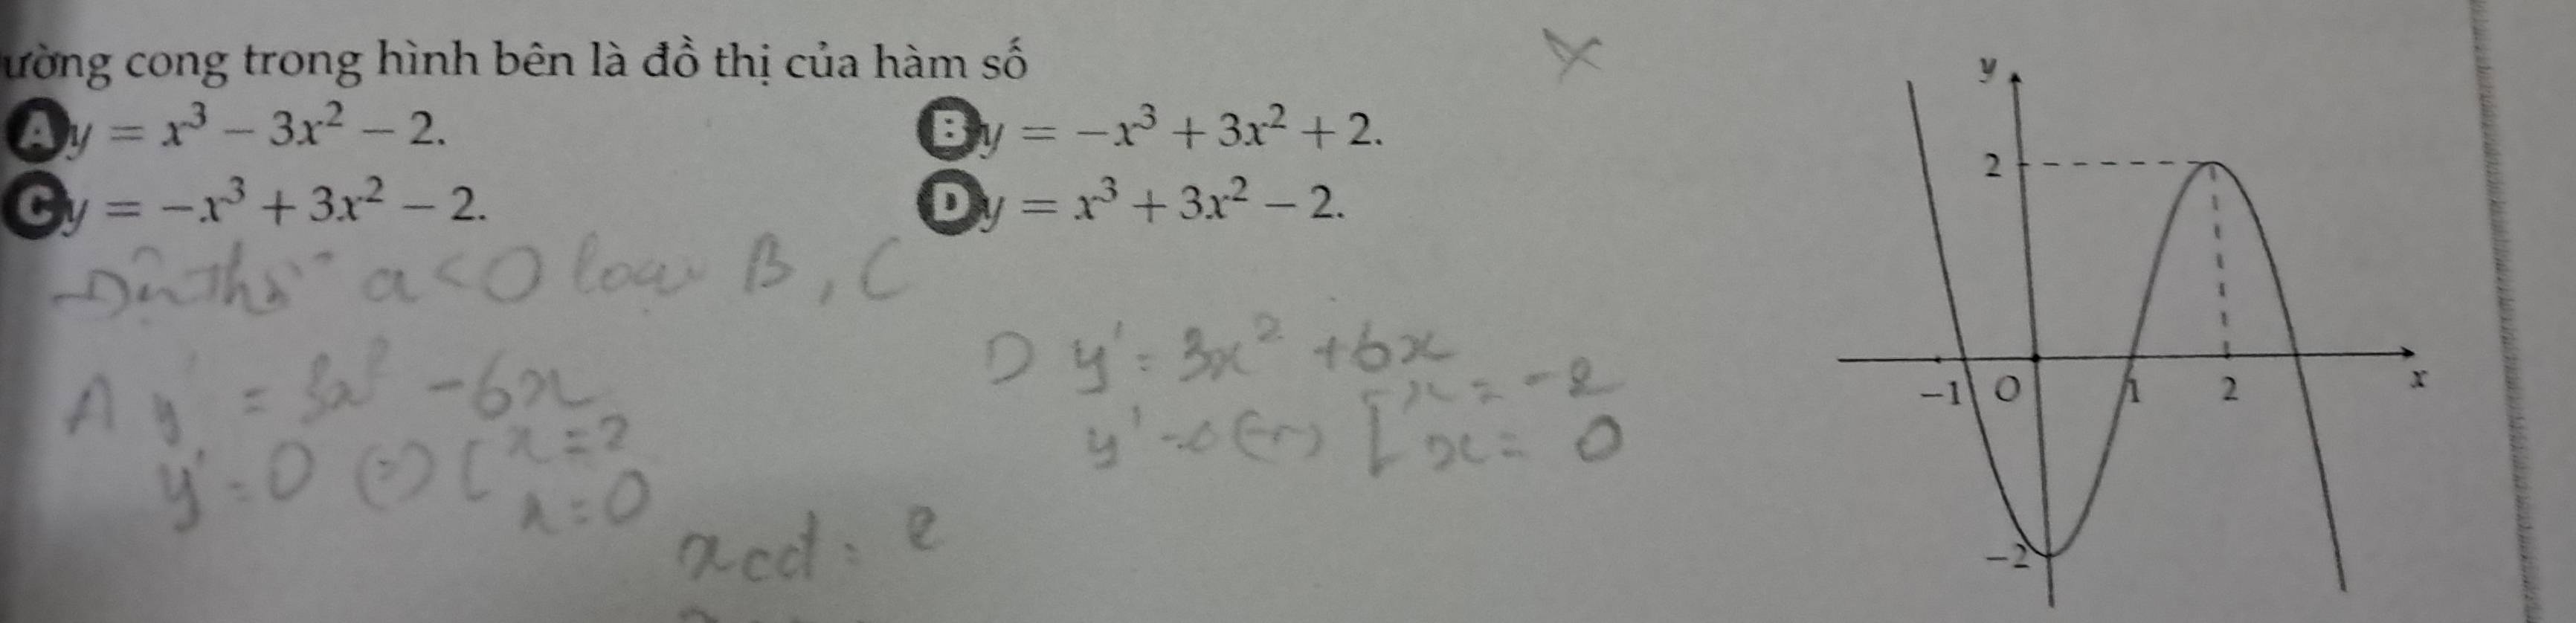 ường cong trong hình bên là đồ thị của hàm số
A y = x³ − 3x² − 2.
B y = −x³ + 3x² + 2.
C y = −x³ + 3x² − 2.
D y = x³ + 3x² − 2.
a < 0 loại B, C
A y' = 3x² − 6x
y' = 0 (=) [ x = 2
x = 0
D y' = 3x² + 6x
[ x = −2
x = 0
xcd = 2
y
2
−1 O 1 2 x
−2